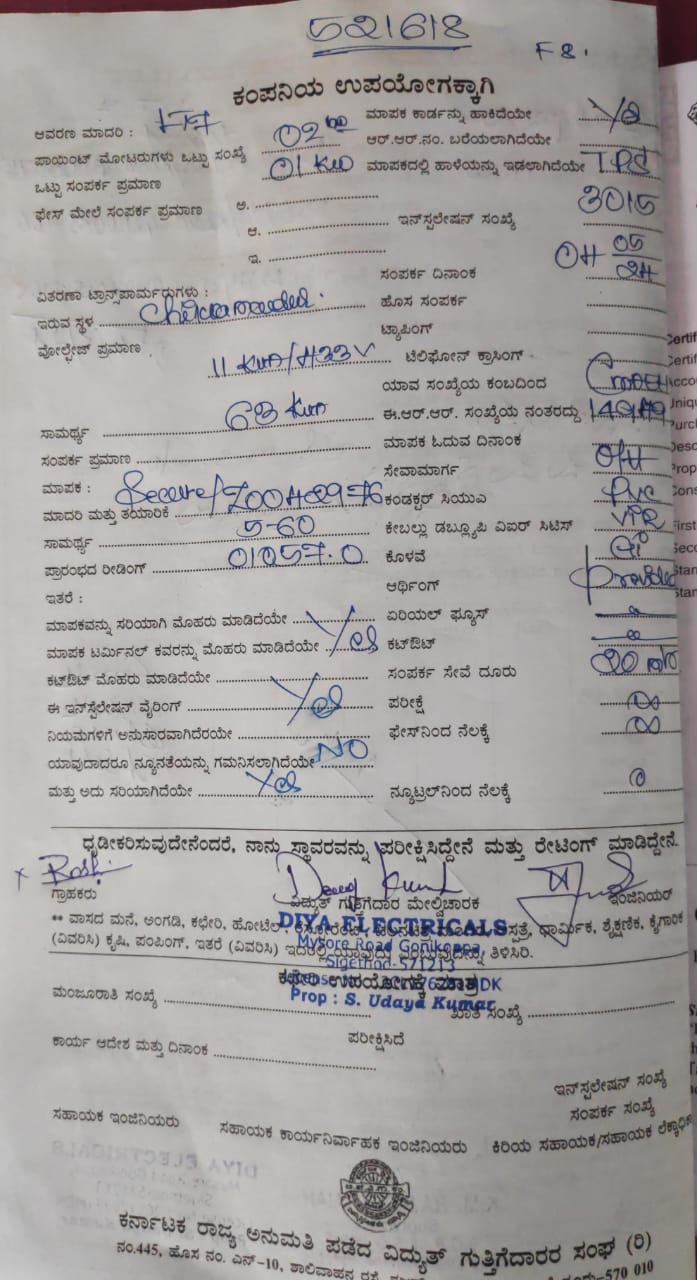 521618
F 8.
ಕಂಪನಿಯ ಉಪಯೋಗಕ್ಕಾಗಿ
ಆವರಣ ಮಾದರಿ :
ಮಾಪಕ ಕಾರ್ಡನ್ನು ಹಾಕಿದೆಯೇ
ಪಾಯಿಂಟ್ ಮೋಟರುಗಳು ಒಟ್ಟು ಸಂಖ್ಯೆ 02
ಆರ್.ಆರ್.ನಂ. ಬರೆಯಲಾಗಿದೆಯೇ
ಒಟ್ಟು ಸಂಪರ್ಕ ಪ್ರಮಾಣ 01 KW
ಮಾಪಕದಲ್ಲಿ ಹಾಳೆಯನ್ನು ಇಡಲಾಗಿದೆಯೇ
ಫೇಸ್ ಮೇಲೆ ಸಂಪರ್ಕ ಪ್ರಮಾಣ ಅ.
ಆ. ಇನ್‌ಸ್ಪಲೇಷನ್ ಸಂಖ್ಯೆ 3015
ಇ.
ಸಂಪರ್ಕ ದಿನಾಂಕ 04 05 24
ವಿತರಣಾ ಟ್ರಾನ್ಸ್‌ಫಾರ್ಮರುಗಳು :
ಇರುವ ಸ್ಥಳ
ಹೊಸ ಸಂಪರ್ಕ
ವೋಲ್ಟೇಜ್ ಪ್ರಮಾಣ 11 /433V
ಟ್ಯಾಪಿಂಗ್
ಟೆಲಿಫೋನ್ ಕ್ರಾಸಿಂಗ್
ಯಾವ ಸಂಖ್ಯೆಯ ಕಂಬದಿಂದ
ಸಾಮರ್ಥ್ಯ 63
ಈ.ಆರ್.ಆರ್. ಸಂಖ್ಯೆಯ ನಂತರದ್ದು
ಸಂಪರ್ಕ ಪ್ರಮಾಣ
ಮಾಪಕ ಓದುವ ದಿನಾಂಕ
ಮಾಪಕ :
ಸೇವಾಮಾರ್ಗ O/H
ಮಾದರಿ ಮತ್ತು ತಯಾರಿಕೆ Secure/
ಕಂಡಕ್ಟರ್ ಸಿಯುವಿ PVC
ಸಾಮರ್ಥ್ಯ 5-60
ಕೇಬಲ್ಲು ಡಬ್ಲ್ಯೂಪಿ ವಿಐರ್ ಸಿಟಿಸ್ VIR
ಪ್ರಾರಂಭದ ರೀಡಿಂಗ್ 01057.0
ಕೊಳವೆ GI
ಇತರೆ :
ಆರ್ಥಿಂಗ್ Provided
ಮಾಪಕವನ್ನು ಸರಿಯಾಗಿ ಮೊಹರು ಮಾಡಿದೆಯೇ
ಏರಿಯಲ್ ಫ್ಯೂಸ್
ಮಾಪಕ ಟರ್ಮಿನಲ್ ಕವರನ್ನು ಮೊಹರು ಮಾಡಿದೆಯೇ Yes
ಕಟ್‌ಔಟ್
ಕಟ್‌ಔಟ್ ಮೊಹರು ಮಾಡಿದೆಯೇ
ಸಂಪರ್ಕ ಸೇವೆ ದೂರು
ಈ ಇನ್‌ಸ್ಪೆಲೇಷನ್ ವೈರಿಂಗ್ Yes
ಪರೀಕ್ಷೆ
ನಿಯಮಗಳಿಗೆ ಅನುಸಾರವಾಗಿದೆರಯೇ
ಫೇಸ್‌ನಿಂದ ನೆಲಕ್ಕೆ
ಯಾವುದಾದರೂ ನ್ಯೂನತೆಯನ್ನು ಗಮನಿಸಲಾಗಿದೆಯೇ NO
ಮತ್ತು ಅದು ಸರಿಯಾಗಿದೆಯೇ Yes
ನ್ಯೂಟ್ರಲ್‌ನಿಂದ ನೆಲಕ್ಕೆ
ಧೃಡೀಕರಿಸುವುದೇನೆಂದರೆ, ನಾನು ಸ್ಥಾವರವನ್ನು ಪರೀಕ್ಷಿಸಿದ್ದೇನೆ ಮತ್ತು ರೇಟಿಂಗ್ ಮಾಡಿದ್ದೇನೆ.
ಗ್ರಾಹಕರು ವಿದ್ಯುತ್ ಗುತ್ತಿಗೆದಾರ ಮೇಲ್ವಿಚಾರಕ ಇಂಜಿನಿಯರ್
** ವಾಸದ ಮನೆ, ಅಂಗಡಿ, ಕಛೇರಿ, ಹೋಟೆಲ್, ಧಾರ್ಮಿಕ, ಶೈಕ್ಷಣಿಕ, ಕೈಗಾರಿಕ
(ವಿವರಿಸಿ) ಕೃಷಿ, ಪಂಪಿಂಗ್, ಇತರೆ (ವಿವರಿಸಿ) ತಿಳಿಸಿರಿ.
DIYA ELECTRICALS
Mysore Road Gonikoppa,
571213
Prop : S. Udaya Kumar
ಕಛೇರಿ ಉಪಯೋಗಕ್ಕೆ ಮಾತ್ರ
ಮಂಜೂರಾತಿ ಸಂಖ್ಯೆ ಖಾತೆ ಸಂಖ್ಯೆ
ಕಾರ್ಯ ಆದೇಶ ಮತ್ತು ದಿನಾಂಕ ಪರೀಕ್ಷಿಸಿದೆ
ಇನ್‌ಸ್ಪಲೇಷನ್ ಸಂಖ್ಯೆ
ಸಂಪರ್ಕ ಸಂಖ್ಯೆ
ಸಹಾಯಕ ಇಂಜಿನಿಯರು ಸಹಾಯಕ ಕಾರ್ಯನಿರ್ವಾಹಕ ಇಂಜಿನಿಯರು ಕಿರಿಯ ಸಹಾಯಕ/ಸಹಾಯಕ
ಕರ್ನಾಟಕ ರಾಜ್ಯ ಅನುಮತಿ ಪಡೆದ ವಿದ್ಯುತ್ ಗುತ್ತಿಗೆದಾರರ ಸಂಘ (ರಿ)
ನಂ.445, ಹೊಸ ನಂ. ಎನ್-10, ಶಾಲಿವಾಹನ ರಸ್ತೆ, 570 010